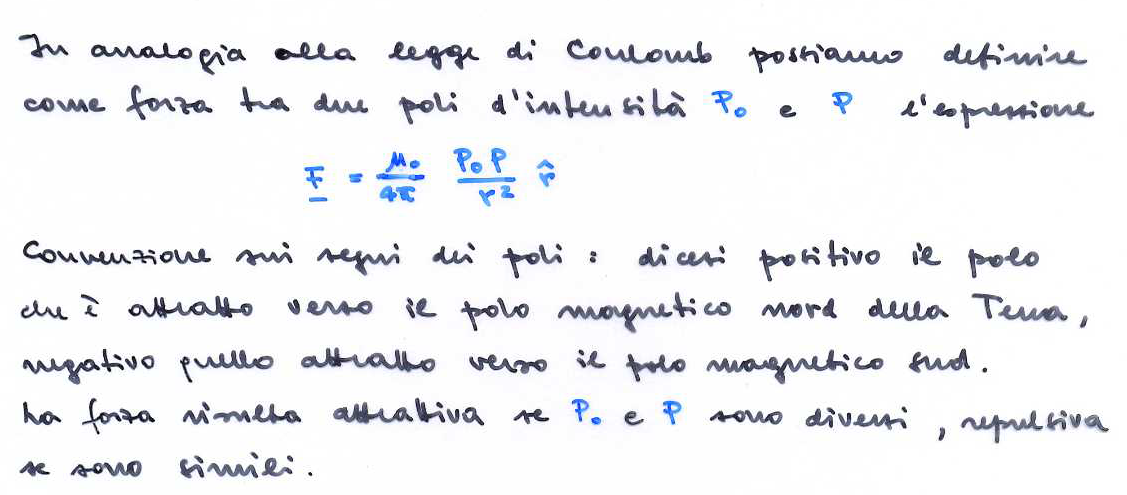 In analogia alla legge di Coulomb possiamo definire
come forza tra due poli d'intensità P₀ e P l'espressione
F = μ₀/4π P₀P/r² r̂
Convenzione sui segni dei poli : dicesi positivo il polo
che è attratto verso il polo magnetico nord della Terra,
negativo quello attratto verso il polo magnetico sud.
La forza risulta attrattiva se P₀ e P sono diversi, repulsiva
se sono simili.